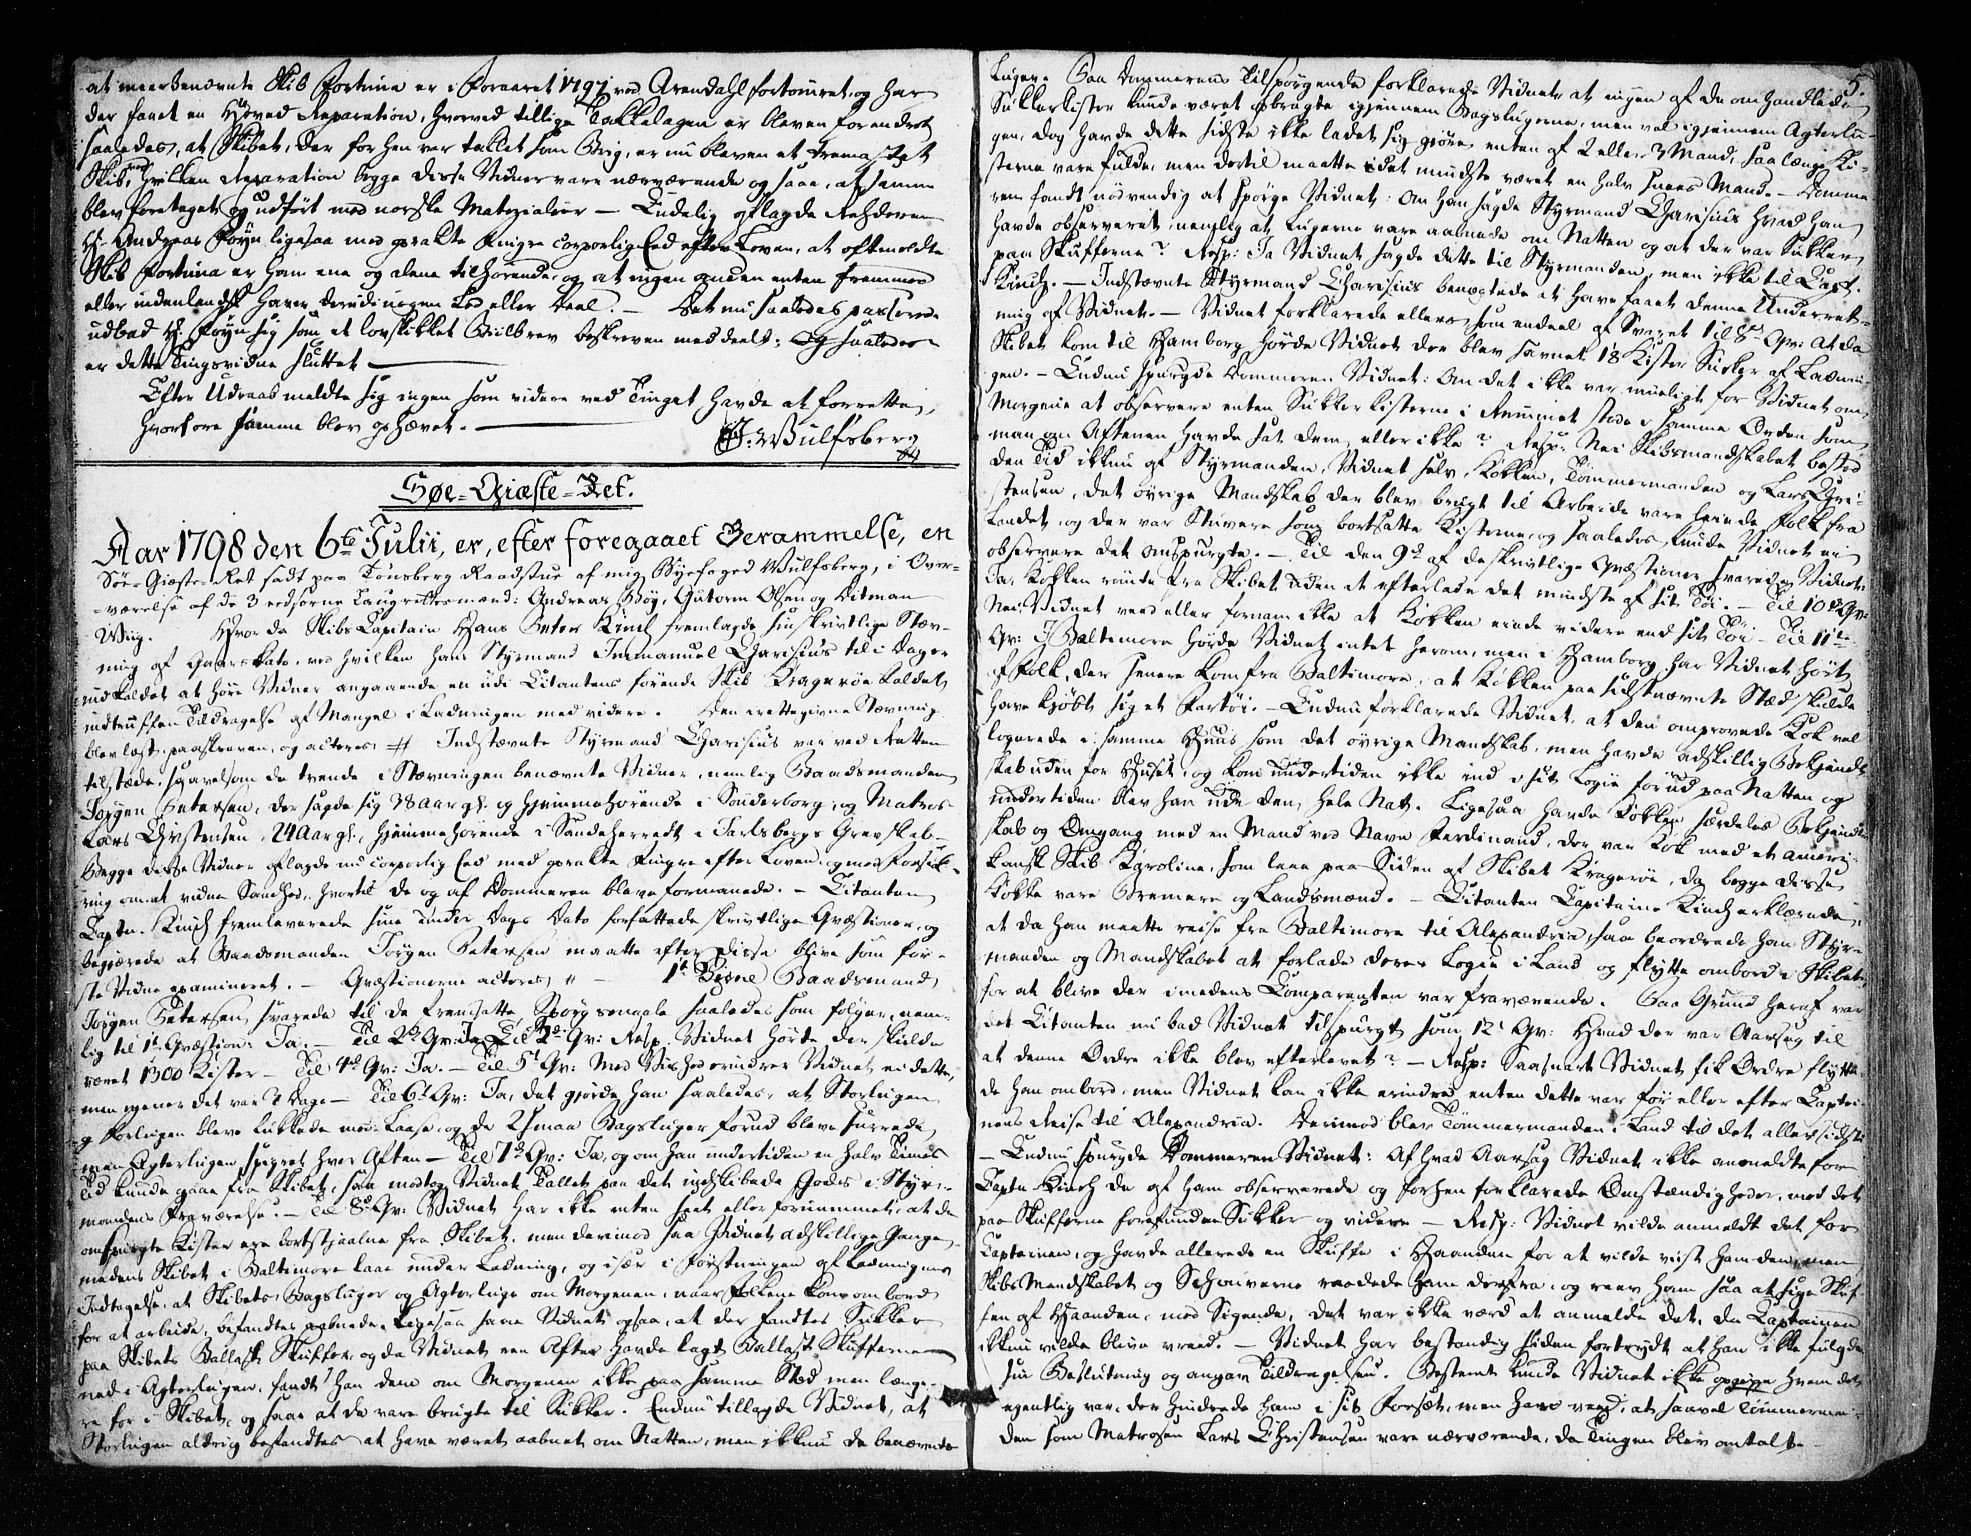 at meerbenævnte Skib Fortuna er i Foraaret 1797 ved Arendahl fortømret, og har
der faaet en Hoved Reparation, hvorved tillige Takkelagen er bleven forandret
saaledes, at Skibet, der forhen var taklet som Brig, er nu bleven et Tremastet
Skib, ved hvilken Reparation begge disse Vidner vare nærværende og saae, at samme
blev foretaget og udført med norske Materialier — Endelig aflagde Rehderen
Hr Andreas Føyn ligesaa med oprakte Fingre corporlig Eed efter Loven, at oftemeldte
Skib Fortuna er ham ene og alene tilhørende, og at ingen anden enten fremmed
eller indenlandsk haver derudi nogen Lod eller Deel. — Det nu saaledes passerede
udbad Hr Føyn sig som et lovskikket Biilbrev beskreven meddeelt; Og saaledes
er dette Tingsvidne sluttet
Efter Udraab meldte sig ingen som videre ved Tinget havde at forrette,
hvorfore samme blev ophævet.
J. Wulfsberg
Søe-Giæste-Ret.
Aar 1798 den 6te Julii, er, efter foregaaet Berammelse, en
Søe-Giæste-Ret sadt paa Tønsberg Raadstue af mig Byefoged Wulfsberg, i Over-
-værelse af de 3 eedsorne Laugrettesmænd: Andreas Bøy, Gutorm Olsen og Ditman
Wiig. Hvor da Skibs Capitain Hans Peter Kinch fremlagde sin skrivtlige Stæv-
ning af Gaarsdato, ved hvilken hans Styrmand Immanuel Charisius til i Dag er
indkaldet at høre Vidner angaaende en udi Citantens førende Skib Kragerøe kaldet
indtruffen Tildragelse af Mangel i Ladningen med videre. Den irettegivne Stævning
blev læst, paaskreven, og acteres # Indstævnte Styrmand Charisius var ved Retten
tilstæde, saavelsom de tvende i Stævningen benævnte Vidner, nemlig Baadsmanden
Jørgen Petersen, der sagde sig 28 Aar gl. og hjemmehørende i Sønderborg, og Matros
Lars Christensen, 24 Aar gl., hjemmehørende i Sandeherredt i Jarlsbergs Grevskab —
Begge disse Vidner aflagde nu corporlig Eed med oprakte Fingre efter Loven, og med Forsik-
ring om at vidne Sandhed, hvortil de og af Dommeren bleve formanede. — Citanten
Captn. Kinch fremleverede sine under Dags Dato forfattede skrivtlige Qvæstioner, og
begjærede at Baadsmanden Jørgen Petersen maatte efter disse blive som før-
ste Vidne examineret. — Qvæstionerne acteres " — 1te Vidne Baadsmand
Jørgen Petersen, svarede til de fremsatte Spørgsmaale saaledes som følger, nem-
lig til 1te Qvæstion: Ja. — Til 2den Qv: Ja Til 3die Qv: Resp: Vidnet hørte der skulde
været 1300 Kister — Til 4de Qv: Ja. — Til 5te Qv: Med Vished erindrer Vidnet ei dette,
men mener det var 8 Dage — Til 6te Qv: Ja, det gjorde han saaledes, at Storlugen
og Forlugen bleve lukkede med Laase, og de 2 smaa Bagsluger forud bleve surrede,
men Agterlugen spigret hver Aften — Til 7de Qv: Ja, og om han undertiden en halv Times
Tid kunde gaae fra Skibet, saa modtog Vidnet Tallet paa det indskibede Gods i Styr-
mandens Fraværelse. — Til 8de Qv: Vidnet har ikke enten seet eller fornummet, at de
omspurgte Kister ere bortstjaalne fra Skibet, men derimod saa Vidnet adskillige Gange,
medens Skibet i Baltimore laae under Ladning, og især i Førstningen af Ladningens
Indtagelse, at Skibets Bagsluger og Agterluge om Morgenen, naar Folkene kom ombord
for at arbeide, befandtes aabnede. Ligesaa saae Vidnet ogsaa, at der fandtes Sukker
paa Skibets Ballast Skuffer, og da Vidnet een Aften havde lagt Ballast Skufferne
ned i Agterlugen, fandt han dem om Morgenen ikke paa samme Sted men længe-
re for i Skibet, og saae at de vare brugte til Sukker. Endnu tillagde Vidnet, at
Storlugen aldrig befandtes at have været aabnet om Natten, men ikkun de benævnte
5.
Luger. Paa Dommerens Tilspørgende forklarede Vidnet at ingen af de omhandlede
Sukkerkister kunde været opbragte igjennem Bagslugerne, men vel igjennem Agterlu-
gen, dog havde dette sidste ikke ladet sig gjøre enten af 2 eller 3 Mand, saalænge Ki-
sterne vare fulde, men dertil maatte i det mindste været en halv Snees Mand. — Domme-
ren fandt nødvendig at spørge Vidnet: Om han sagde Styrmand Charisius hvad han
havde observeret, nemlig at Lugerne vare aabnede om Natten og at der var Sukker
paa Skufferne? Resp: Ja Vidnet sagde dette til Styrmanden, men ikke til Capt.
Kinch. — Indstævnte Styrmand Charisius benægtede at have faaet denne Underret-
ning af Vidnet. — Vidnet forklarede ellers som endeel af Svaret til 8de Qv: At da
Skibet kom til Hamborg hørte Vidnet der blev savnet 18 Kister Sukker af Ladnin-
gen. — Endnu spurgde Dommeren Vidnet: Om det ikke var mueligt for Vidnet om
Morgenen at observere enten Sukkerkisterne i Rummet stode i samme Orden som
man om Aftenen havde sat dem, eller ikke? Resp: Nei Skibsmandskabet bestod
den Tid ikkun af Styrmanden, Vidnet selv, Kokken, Tømmermanden og Lars Chri-
stensen, det øvrige Mandskab der blev brugt til Arbeide vare leiede Folk fra
Landet, og der var Stuvere som bortsatte Kisterne, og saaledes kunde Vidnet ei
observere det omspurgte. — Til den 9de af de skrivtlige Qvæstioner svarede Vidnet:
Ja, Kokken rømte fra Skibet uden at efterlade det mindste af sit Tøi. — Til 10de Qv:
Nei Vidnet veed eller fornam ikke at Kokken eiede videre end sit Tøi — Til 11te
Qv: I Baltimore hørde Vidnet intet herom, men i Hamborg har Vidnet hørt
af Folk, der senere kom fra Baltimore, at Kokken paa sidstnævnte Stæd skulde
have kjøbt sig et Fartøi. — Endnu forklarede Vidnet, at den omprovede Kok vel
logerede i samme Huus som det øvrige Mandskab, men havde adskillig Bekjendt-
skab uden for Huset, og kom undertiden ikke ind i sit Logie forud paa Natten og
undertiden blev han ude den hele Nat. Ligesaa havde Kokken særdeles Bekjendt-
skab og Omgang med en Mand ved Navn Ferdinand, der var Kok med et Ameri-
kansk Skib Karoline, som laae paa Siden af Skibet Kragerøe, da begge disse
Kokke vare Bremere og Landsmænd. — Citanten Capitaine Kinch erklærede,
at da han maatte reise fra Baltimore til Alexandria, saa beordrede han Styr-
manden og Mandskabet at forlade deres Logie i Land og flytte ombord i Skibet,
for at blive der imedens Comparenten var fraværende. Paa Grund heraf var
det Citanten nu bad Vidnet tilspurgt som 12te Qv: Hvad der var Aarsag til
at denne Ordre ikke blev efterlevet? — Resp: Saasnart Vidnet fik Ordre flytte-
de han ombord, men Vidnet kan ikke erindre enten dette var før eller efter Captei-
nens Reise til Alexandria. Derimod blev Tømmermanden i Land til det allersidste
— Endnu spurgde Dommeren Vidnet: Af hvad Aarsag Vidnet ikke anmeldte for
Captn Kinch de af ham observerede og forhen forklarede Omstændigheder, med det
paa Skufferne forefundne Sukker og videre — Resp: Vidnet vilde anmeldt det for
Capteinen, og havde allerede en Skuffe i Haanden for at vilde viist ham den, men
Skibs Mandskabet og Schauerne raadede ham derfra, og reev ham saa at sige Skuf-
fen af Haanden, med Sigende, det var ikke værd at anmelde det, da Capteinen
ikkun vilde blive vreed. — Vidnet har bestandig siden fortrydt at han ikke fulgde
sin Beslutning og angav Tildragelsen. Bestemt kunde Vidnet ikke opgive hvem det
egentlig var, der hindrede ham i sit Forsæt, men han veed, at saavel Tømmerman-
den som Matrosen Lars Christensen vare nærværende, da Tingen blev omtalt. —